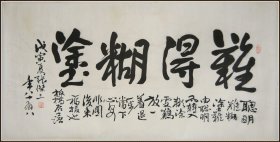 難得糊塗
聰明
難糊
塗難
由聰明
而轉入
糊塗
更難
放一
着退
一步
當下
心安
非圖
後來
福報也
戊寅夏